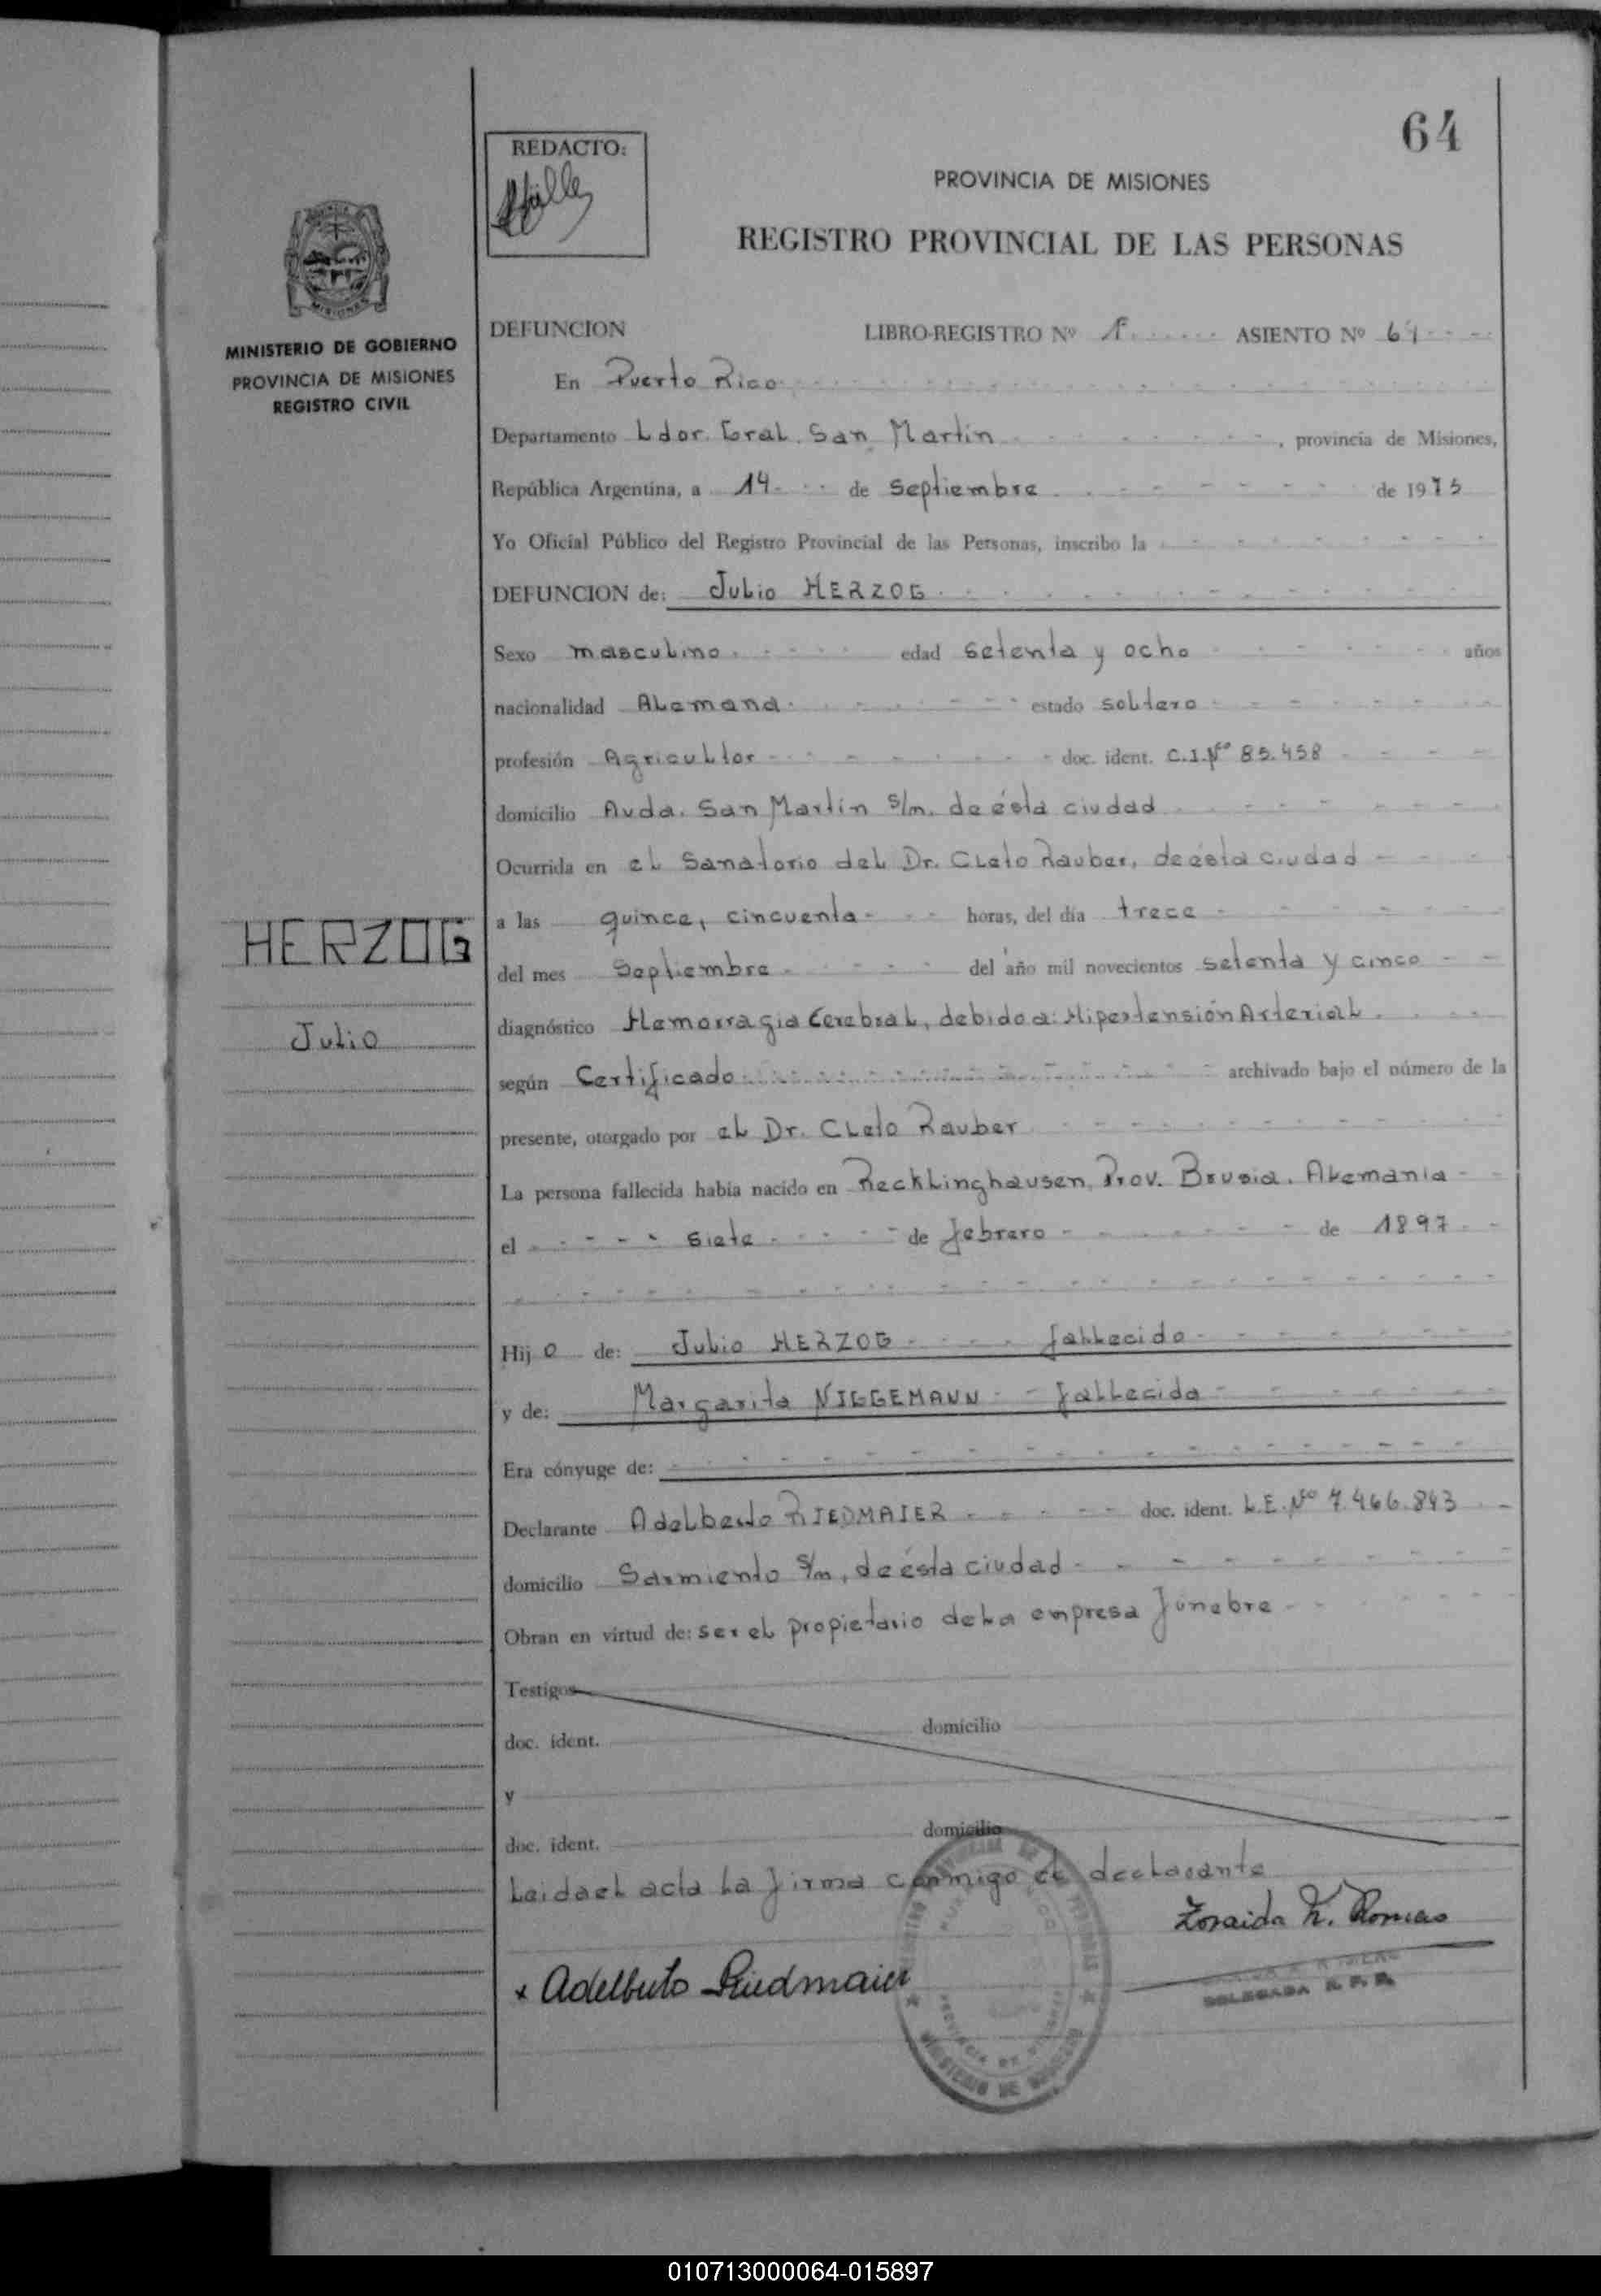 64
REDACTO:
PROVINCIA DE MISIONES
REGISTRO PROVINCIAL DE LAS PERSONAS
MINISTERIO DE GOBIERNO
PROVINCIA DE MISIONES
REGISTRO CIVIL
DEFUNCION LIBRO-REGISTRO Nº 1º ASIENTO Nº 64
En Puerto Rico
Departamento Ldor. Gral. San Martín , provincia de Misiones,
República Argentina, a 14 de Septiembre de 1975
Yo Oficial Público del Registro Provincial de las Personas, inscribo la
DEFUNCION de: Julio HERZOG
Sexo masculino edad setenta y ocho años
nacionalidad Alemana estado soltero
profesión Agricultor doc. ident. C.I.Nº 85.458
domicilio Avda. San Martín s/n. de ésta ciudad
Ocurrida en el Sanatorio del Dr. Cleto Rauber, de ésta ciudad
a las quince, cincuenta horas, del día trece
HERZOG
del mes Septiembre del año mil novecientos setenta y cinco
Julio
diagnóstico Hemorragia Cerebral, debido a: Hipertensión Arterial.
según Certificado archivado bajo el número de la
presente, otorgado por el Dr. Cleto Rauber
La persona fallecida había nacido en Recklinghausen, Prov. Brusia. Alemania
el siete de febrero de 1897
Hij o de: Julio HERZOG fallecido
y de: Margarita NIGGEMANN fallecida
Era cónyuge de:
Declarante Adelberto RIEDMAIER doc. ident. L.E.Nº 7.466.843
domicilio Sarmiento s/n, de ésta ciudad
Obran en virtud de: ser el propietario de la empresa fúnebre
Testigos
doc. ident. domicilio
y
doc. ident. domicilio
Leida el acta la firma conmigo el declarante
x Adelberto Riedmaier
DELEGADA R. P. P.
MINISTERIO DE GOBIERNO
010713000064-015897